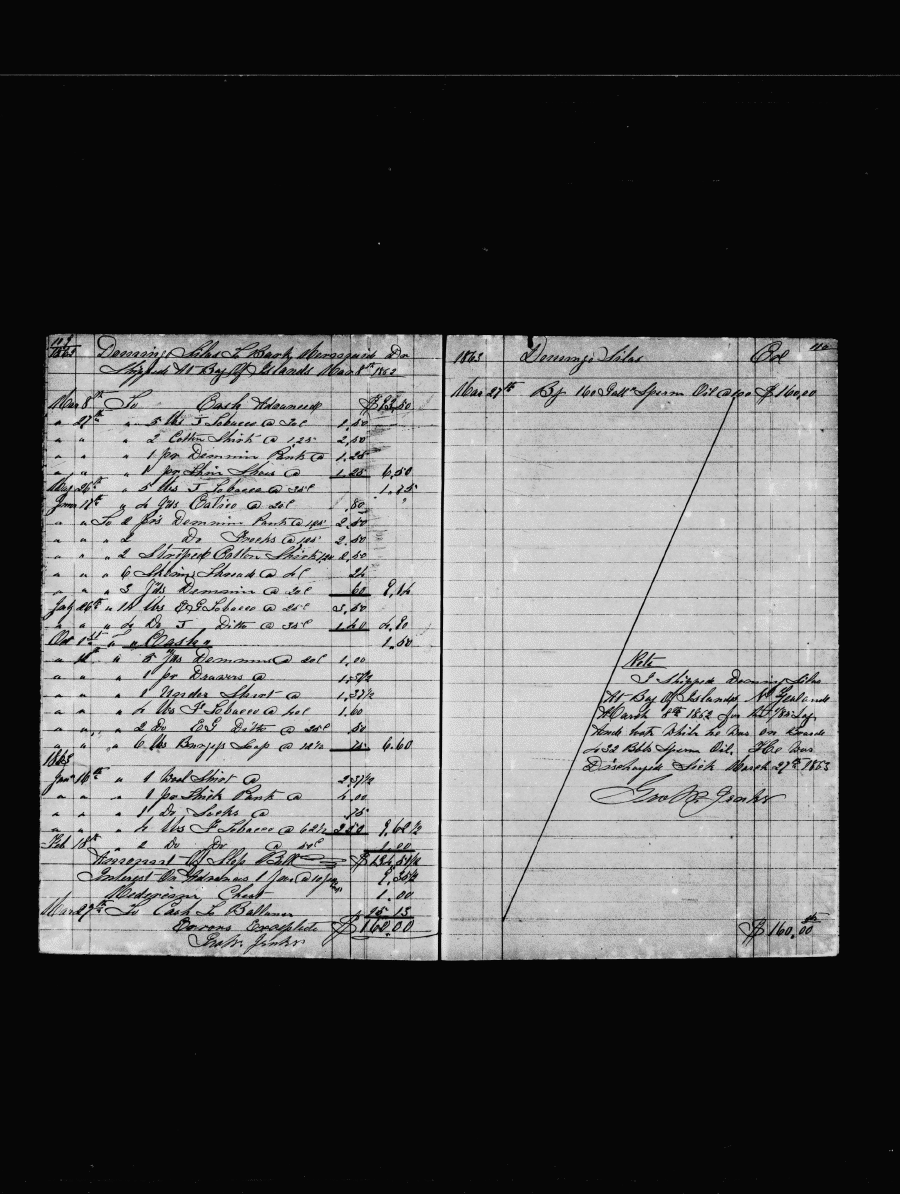 1863 Domingo Silas To Bark Dr
Shipped At Bay Of Islands Mar 8th 1862
Mar 8th To Cash Advanced
" 27th " 5 lbs T Tobacco @ 30c 1,50
" " " 2 Cotton Shirts @ 1,25 2,50
" " " 1 pr Demmin Pants @ 1,25
" " " 1 pr Shoes @ 1,25 6,50
26th " 5 lbs T Tobacco @ 35c 1,75
18th " 4 Yds Calico @ 20c ,80
" " To 2 prs Demmin Pants @ 1,25 2,50
" " " 2 Do Frocks @ 1,25 2,50
" " " 2 Striped Cotton Shirts 2,50
" " " 6 Thread @ 4c 24
" " " 3 Yds Demmin @ 20c 60 9,14
July 26th " 14 lbs EG Tobacco @ 25c 3,50
" " " 4 Do T Ditto @ 35c 1,40 4,90
Oct 1st " " Cash " 1,50
" " 5 Yds Demmin @ 20c 1,00
" " " 1 pr Drawers @ 1,37½
" " " 1 Under Shirt @ 1,37½
" " " 4 lbs T Tobacco @ 40c 1,60
" " " 2 Do EG Ditto @ 25c ,50
" " " 6 lbs Soap @ 12½ 75 6,60
1863
Jan 16th " 1 Shirt @ 2,37½
" " " 1 pr Thick Pants @ 4,00
" " " 1 Do Socks @ ,75
" " " 4 lbs T Tobacco @ 62½ 2,50 9,62½
Feb 18th " 2 Do Do @ 50c 1,00
Amount Of Slop Bill
Interest On Advances 1 Year @
Medicine Chest 1,00
Mar 27th To Cash To Ballance 15 13
Errors Excepted $160,00
1863 Domingo Silas Cr
Mar 27th By 160 Galls Sperm Oil @ 1,00 $160,00
Note
I Shipped Domingo Silas
At Bay Of Islands N Zealand
March 8th 1862 for Lay
And took While he Was on Board
432 Bbls Sperm Oil. He Was
Discharged Sick March 27th 1863
$160,00